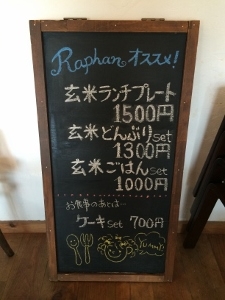 Raphan オススメ!
玄米ランチプレート
1500円
玄米どんぶりset
1300円
玄米ごはんset
1000円
お食事のあとは…
ケーキset 700円
Yummy